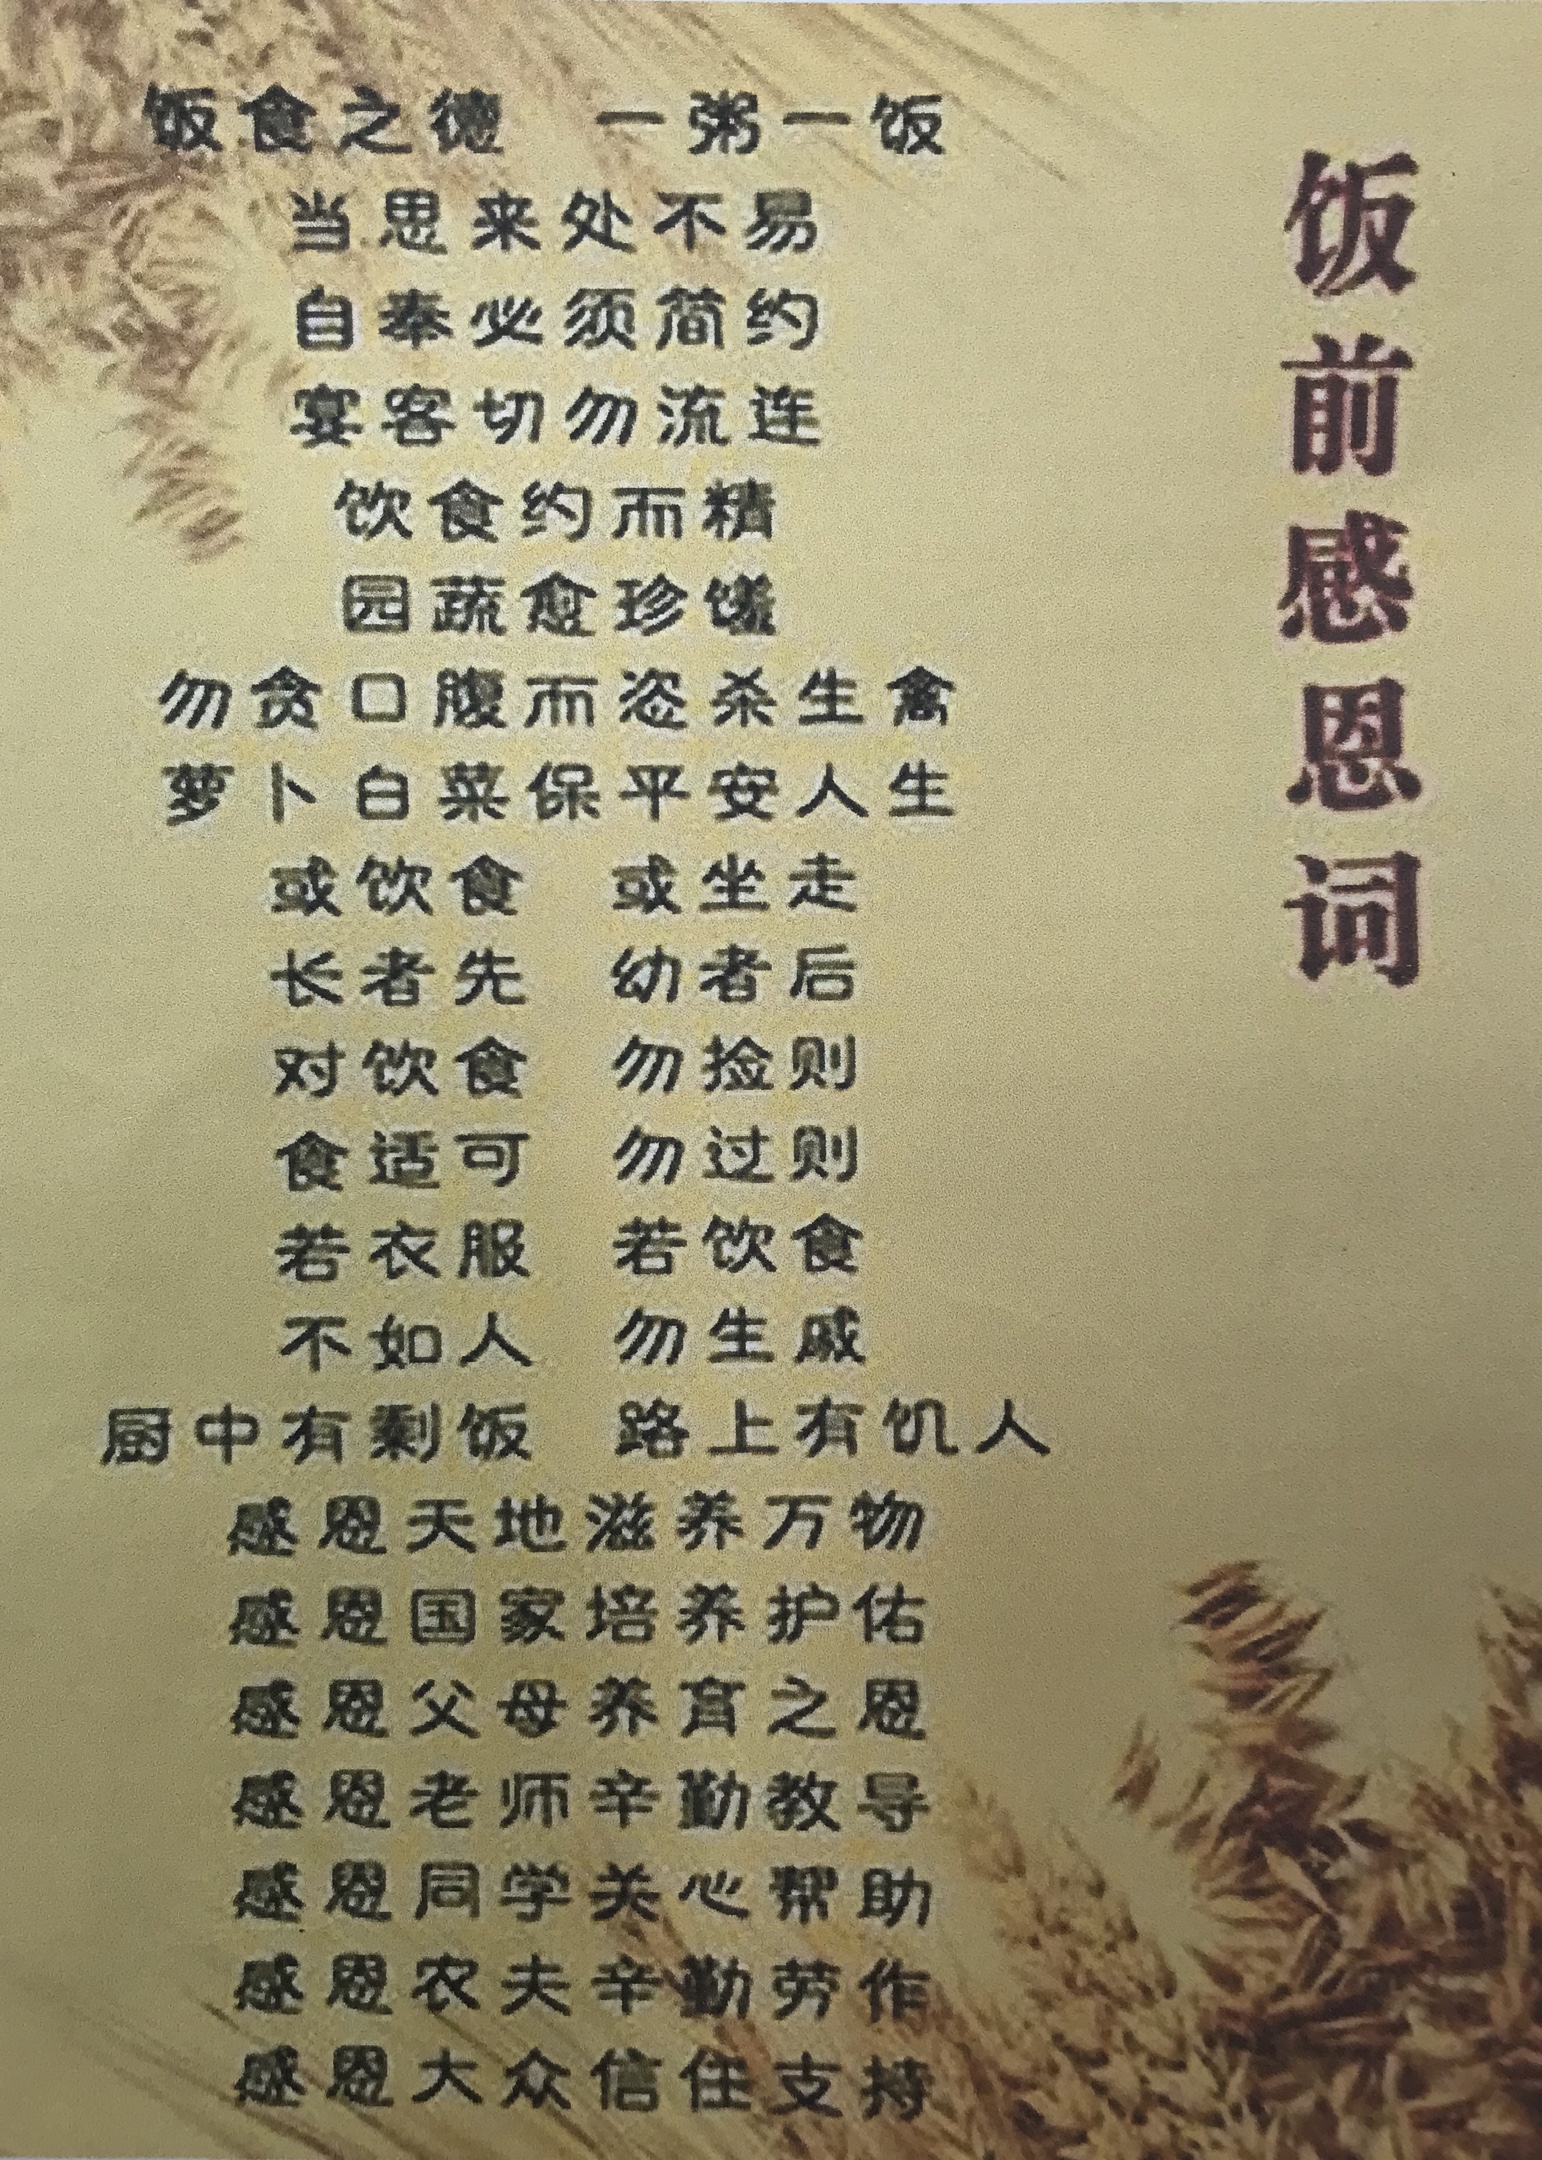 饭前感恩词
饭食之德 一粥一饭
当思来处不易
自奉必须简约
宴客切勿流连
饮食约而精
园蔬愈珍馐
勿贪口腹而恣杀生禽
萝卜白菜保平安人生
或饮食 或坐走
长者先 幼者后
对饮食 勿捡则
食适可 勿过则
若衣服 若饮食
不如人 勿生戚
厨中有剩饭 路上有饥人
感恩天地滋养万物
感恩国家培养护佑
感恩父母养育之恩
感恩老师辛勤教导
感恩同学关心帮助
感恩农夫辛勤劳作
感恩大众信任支持